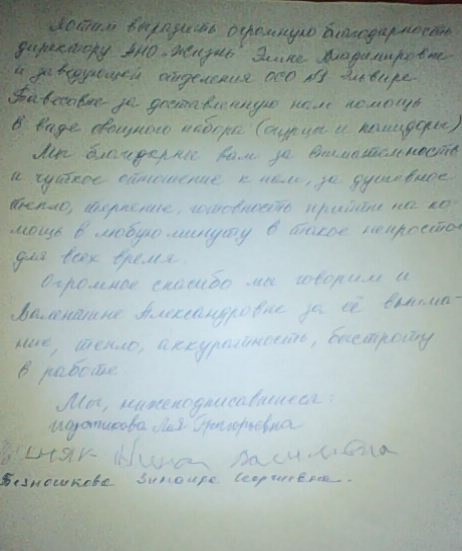 Хотим выразить огромную благодарность
директору АНО "Жизнь Элине Владимировне
и заведующей отделения ОСО №1 Эльвире
за доставленную нам помощь
в ваде овощного набора (огурцы и помидоры)
Мы благодарны вам за внимательность
и чуткое отношение к нам, за душевное
тепло, терпение, готовность прийти на по-
мощь в любую минуту в такое непростое
для всех время.
Огромное спасибо мы говорим и
Валентине Александровне за её внима-
ние, тепло, аккуратность, быстроту
в работе.
Мы, нижеподписавшиеся:
Лия Григорьевна
Нина
Зинаида Георгиевна.